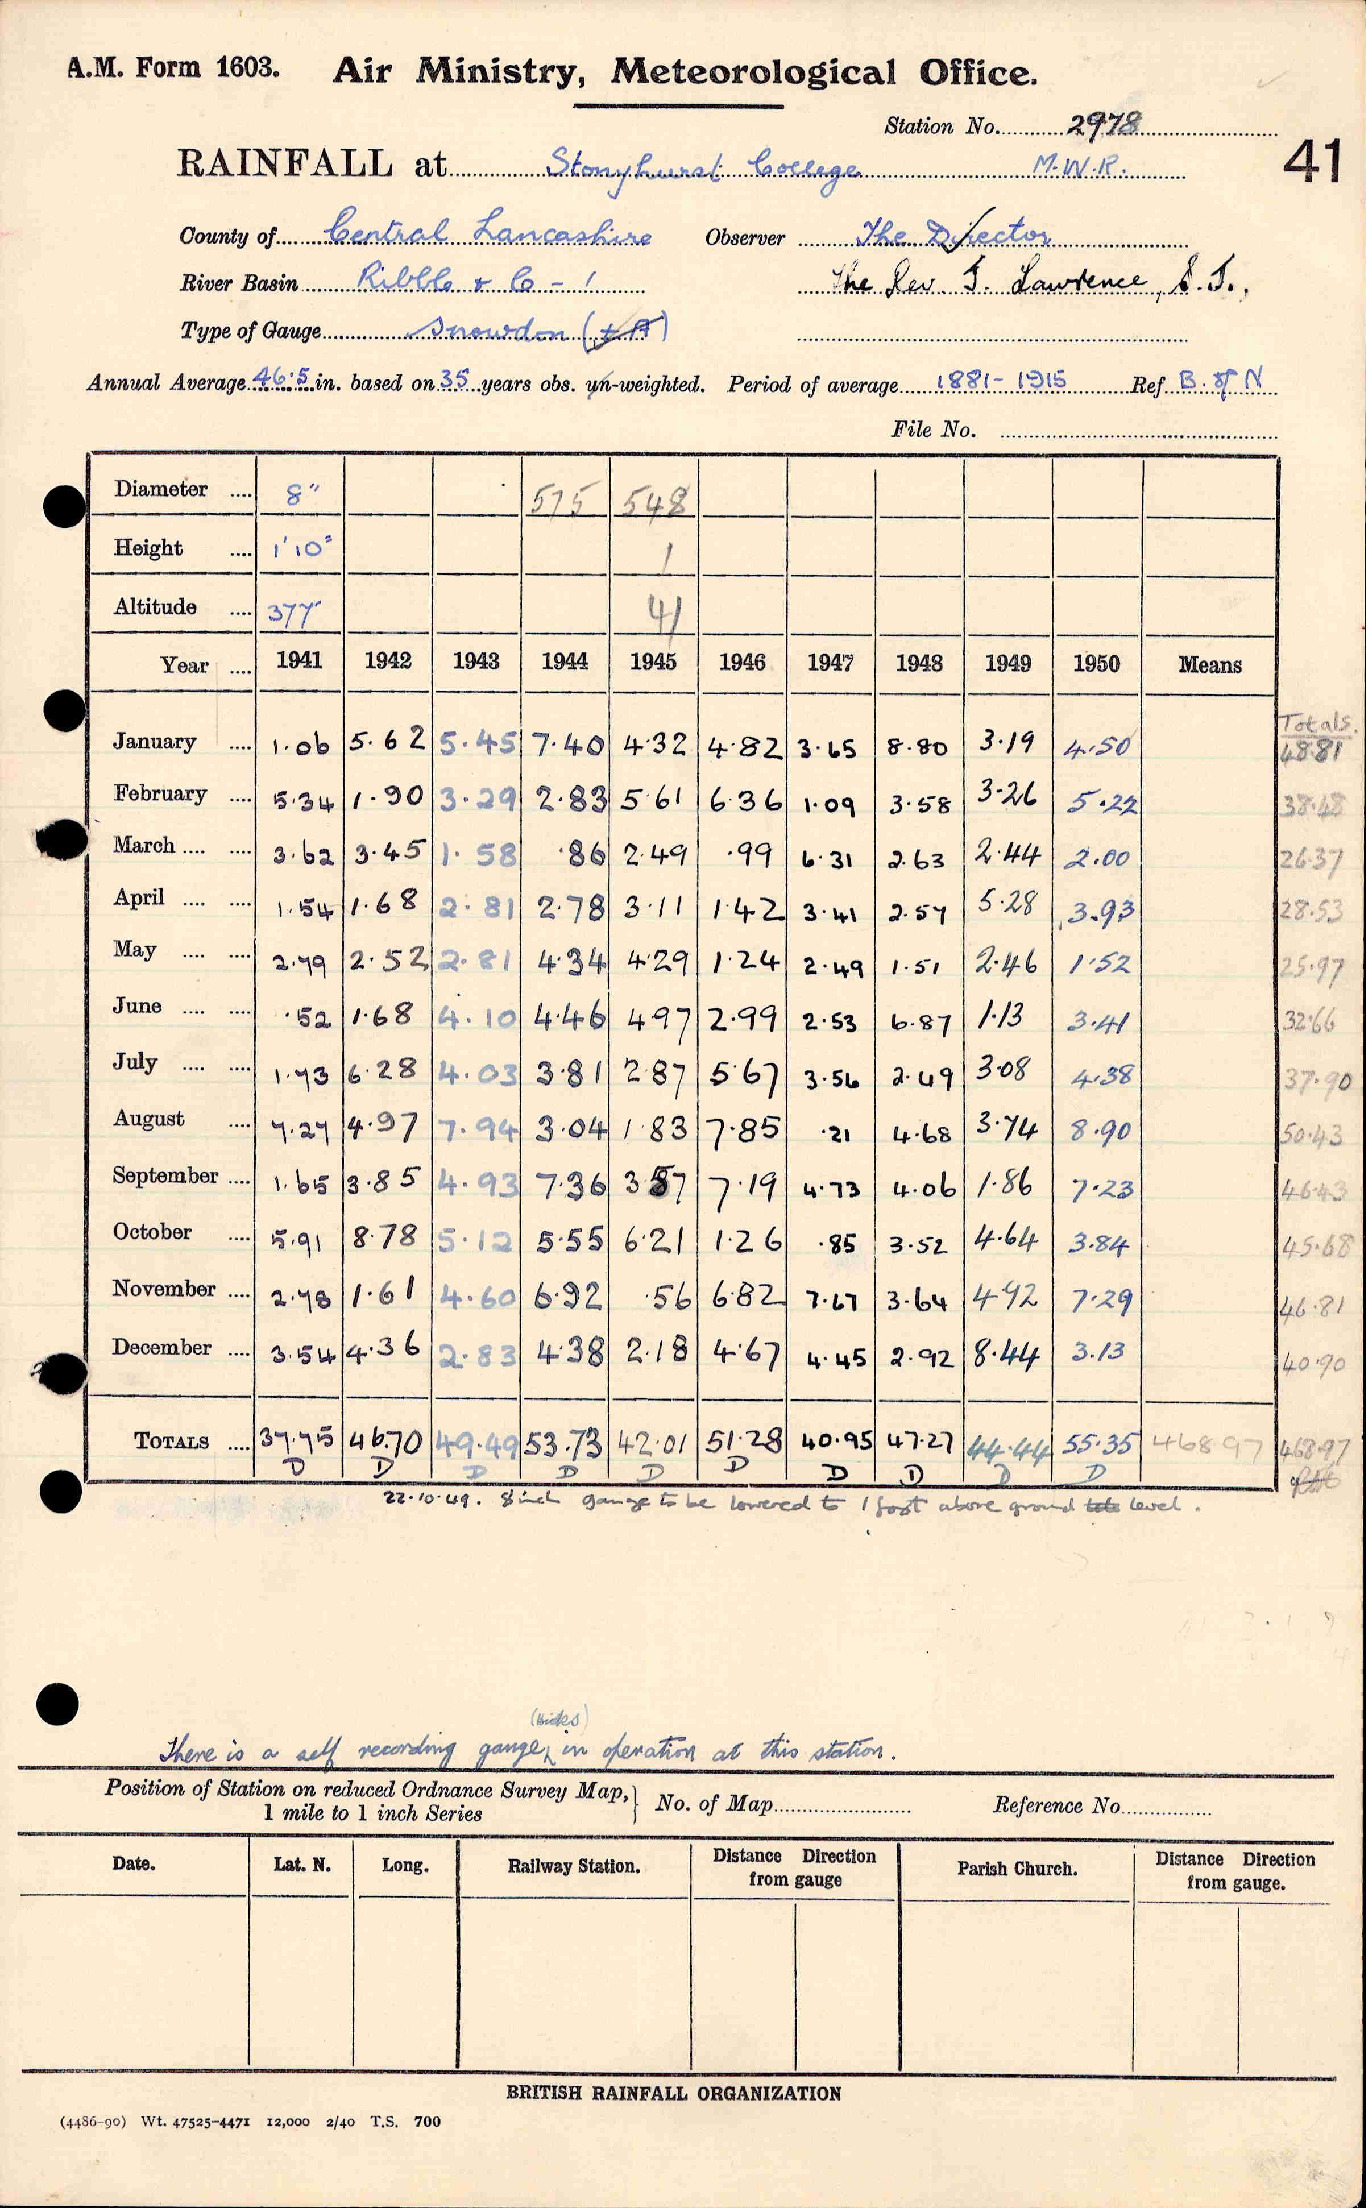 A.M. Form 1603. Air Ministry, Meteorological Office.
Station No. 2978
RAINFALL at Stonyhurst College M.W.R. 41
County of Central Lancashire Observer The Director
River Basin Ribble & C - 1 The Rev F. Lawrence, S.J.,
Type of Gauge Snowdon (+A)
Annual Average 46.5 in. based on 35 years obs. un-weighted. Period of average 1881-1915 Ref B. of N
File No.
Diameter .... 8" 575 548
Height .... 1'10" 1
Altitude .... 377' 41
Year .... 1941 1942 1943 1944 1945 1946 1947 1948 1949 1950 Means
Totals.
January .... 1.06 5.62 5.45 7.40 4.32 4.82 3.65 8.80 3.19 4.50 48.81
February .... 5.34 1.90 3.29 2.83 5.61 6.36 1.09 3.58 3.26 5.22 38.48
March .... .... 3.62 3.45 1.58 .86 2.49 .99 6.31 2.63 2.44 2.00 26.37
April .... .... 1.54 1.68 2.81 2.78 3.11 1.42 3.41 2.57 5.28 3.93 28.53
May .... .... 2.79 2.52 2.81 4.34 4.29 1.24 2.49 1.51 2.46 1.52 25.97
June .... .... .52 1.68 4.10 4.46 4.97 2.99 2.53 6.87 1.13 3.41 32.66
July .... .... 1.73 6.28 4.03 3.81 2.87 5.67 3.56 2.49 3.08 4.38 37.90
August .... 7.27 4.97 7.94 3.04 1.83 7.85 .21 4.68 3.74 8.90 50.43
September .... 1.65 3.85 4.93 7.36 3.57 7.19 4.73 4.06 1.86 7.23 46.43
October .... 5.91 8.78 5.12 5.55 6.21 1.26 .85 3.52 4.64 3.84 45.68
November .... 2.78 1.61 4.60 6.92 .56 6.82 7.67 3.64 4.92 7.29 46.81
December .... 3.54 4.36 2.83 4.38 2.18 4.67 4.45 2.92 8.44 3.13 40.90
TOTALS .... 37.75 46.70 49.49 53.73 42.01 51.28 40.95 47.27 44.44 55.35 468.97 468.97
D D D D D D D D D D
22.10.49. 8 inch gauge to be lowered to 1 foot above ground level.
(Hicks)
There is a self recording gauge, in operation at this station.
Position of Station on reduced Ordnance Survey Map,} No. of Map Reference No.
1 mile to 1 inch Series
Date. Lat. N. Long. Railway Station. Distance Direction from gauge Parish Church. Distance Direction from gauge.
BRITISH RAINFALL ORGANIZATION
(4486-90) Wt. 47525-4471 12,000 2/40 T.S. 700